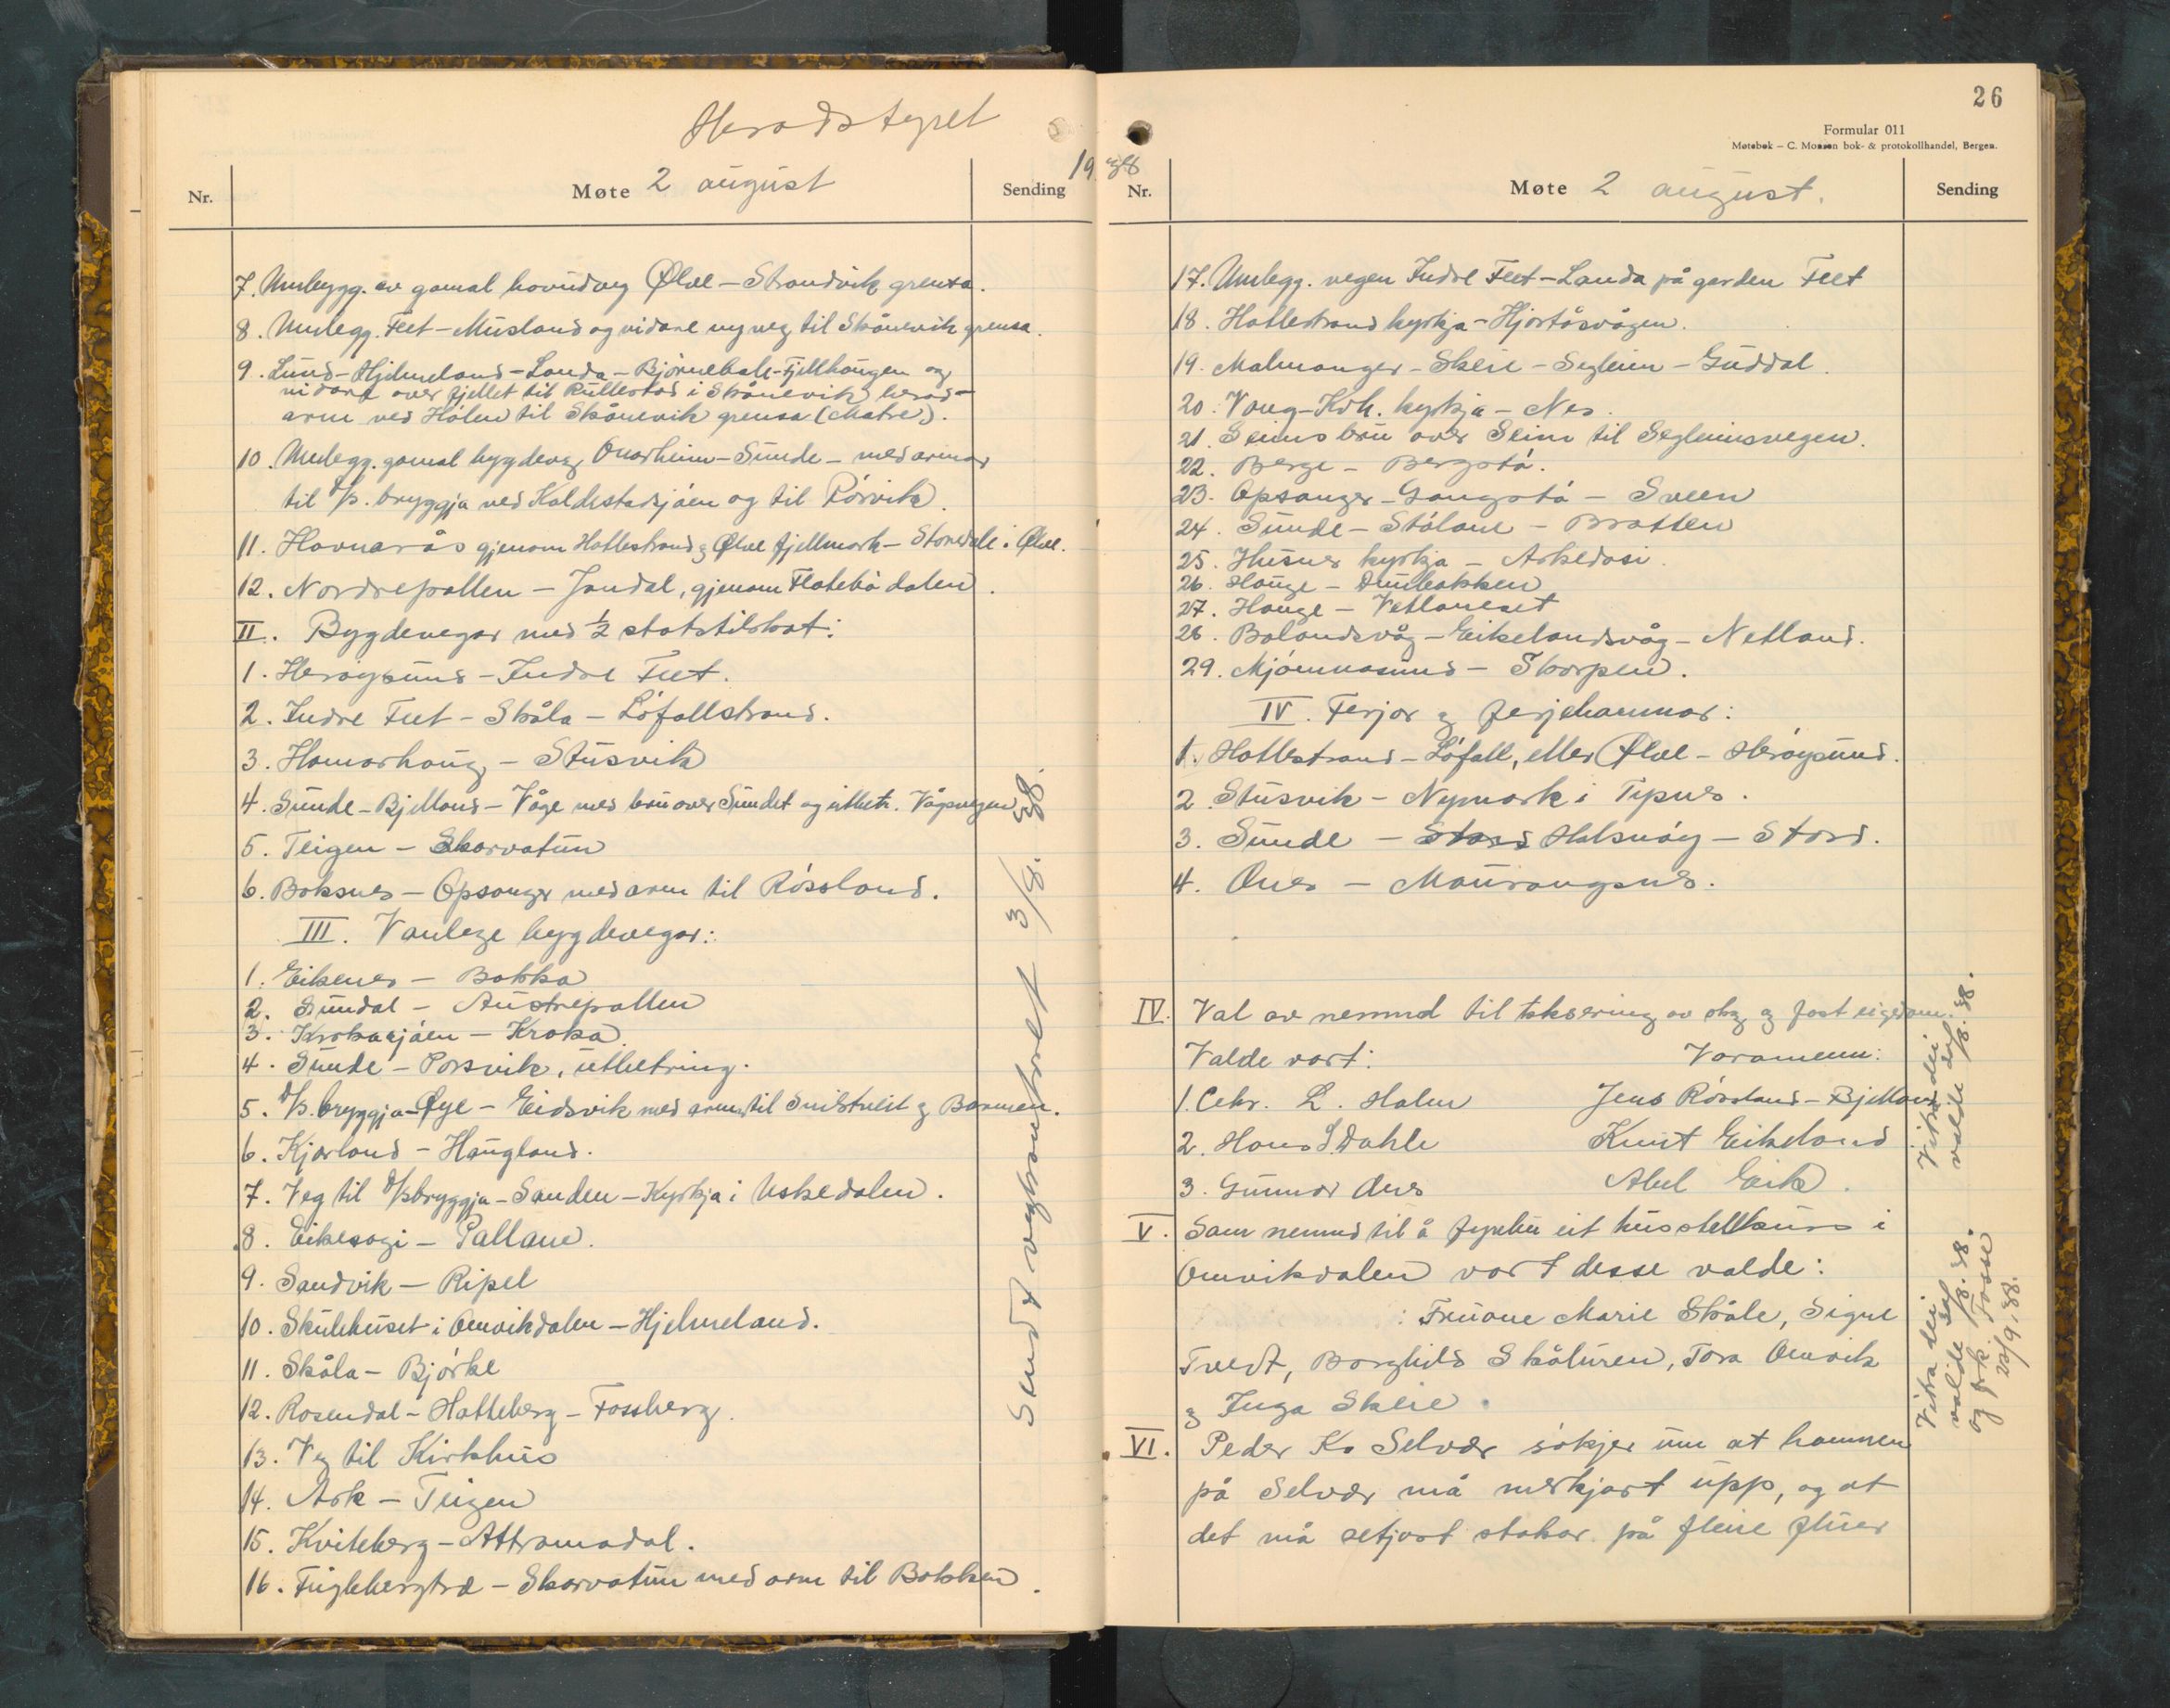 Heradstyret
Nr.
Møte 2 august
Sending
1938
7. Umbygg. av gamal hovudveg Ølve - Strandvik grensa.
8. Umlegg. Feet - Musland og vidare ny veg til Skånevik grensa.
9. Lund - Hjelmeland - Landa - Bjørnebøle - Fjellhaugen og
vidare over fjellet til Rullestad i Skånevik herad -
arm ved Hólen til Skånevik grensa (Matre).
10. Umlegg. gamal bygdeveg Onarheim - Sunde - med armar
til D/s. bryggja ved Kaldestadsjóen og til Pórsvik.
11. Havnarås gjenom Hatlestrand og Ølve fjellmark - Storedale i Ølve.
12. Nordrepollen - Jondal, gjenom Flatebó dalen.
II. Bygdevegar med ½ statstilskot:
1. Heróysund - Indre Feet.
2. Indre Feet - Skåla - Lófallstrand.
3. Hamarhaug - Stusvik
4. Sunde - Bjelland - Våge med bru over Sundet og utbetr. Vågsvegen
5. Teigen - Skarvatun
6. Boksnes - Opsanger med arm til Róssland.
III. Vanlege bygdevegar:
1. Eikenes - Bakka
2. Sundal - Austrepollen
3. Krokasjóen - Kroka
4. Sunde - Porsvik, utbetring.
5. D/s. bryggja - Øye - Eidsvik med arm til Snilstveit og Barmen.
6. Kjærland - Haugland.
7. Veg til D/s bryggja - Sanden - Kyrkja i Uskedalen.
8. Eikesogi - Pallane.
9. Sandvik - Ripel
10. Skulehuset i Omvikdalen - Hjelmeland.
11. Skåla - Bjórke
12. Rosendal - Hatteberg - Fossberg.
13. Veg til Kirkhus
14. Ask - Teigen
15. Kviteberg - Attramadal.
16. Fuglebergtræ - Skarvatun med arm til Bakken.
Sendt vegkontoret 3/8. 38.
26
Formular 011
Møtebok - C. Monsen bok- & protokollhandel, Bergen.
Nr.
Møte 2 august.
Sending
17. Umlegg. vegen Indre Feet - Landa på garden Feet
18. Hatlestrand kyrkja - Hjortåsvågen.
19. Malmanger - Skeie - Segleim - Guddal.
20. Vang - Kvh. kyrkja - Nes.
21. Seims bru over Seim til Segleimsvegen.
22. Berge - Bergstó.
23. Opsanger - Gangstó - Sveen
24. Sunde - Stólane - Bratten
25. Husnes kyrkja - Askedosi.
26. Hauge - Dunbakken
27. Hauge - Vetlaneset
28. Bolandsvåg - Eikelandsvåg - Netland.
29. Mjómnasund - Skorpen.
IV. Ferjor og ferjehamnar:
1. Hatlestrand - Lófall, eller Ølve - Heróysund.
2. Stusvik - Nymark i Tysnes.
3. Sunde - Stord Halsnóy - Stord.
4. Ones - Maurangsnes.
IV. Val av nemnd til taksering av skog og fast eigedom.
Valde vart: Varamenn:
1. Chr. L. Holm Jens Róssland - Bjelland
2. Hans S. Dahle Knut Eikeland
3. Gunnar Anes Abel Eik.
Vitra dei
valde 20/8. 38.
V. Som nemnd til å fyrebu eit husstellkurs i
Omvikdalen vart desse valde:
: Fruone Marie Skåle, Signe
Tvedt, Borghild Skåluren, Tora Omvik
og Inga Skeie.
Vitra dei
valde 20/8. 38.
og frk Fosse
23/9. 38.
VI. Peder K. Selvær sókjer um at hamnen
på Selvær må merkjast upp, og at
det må setjast stakar på fleire fluer